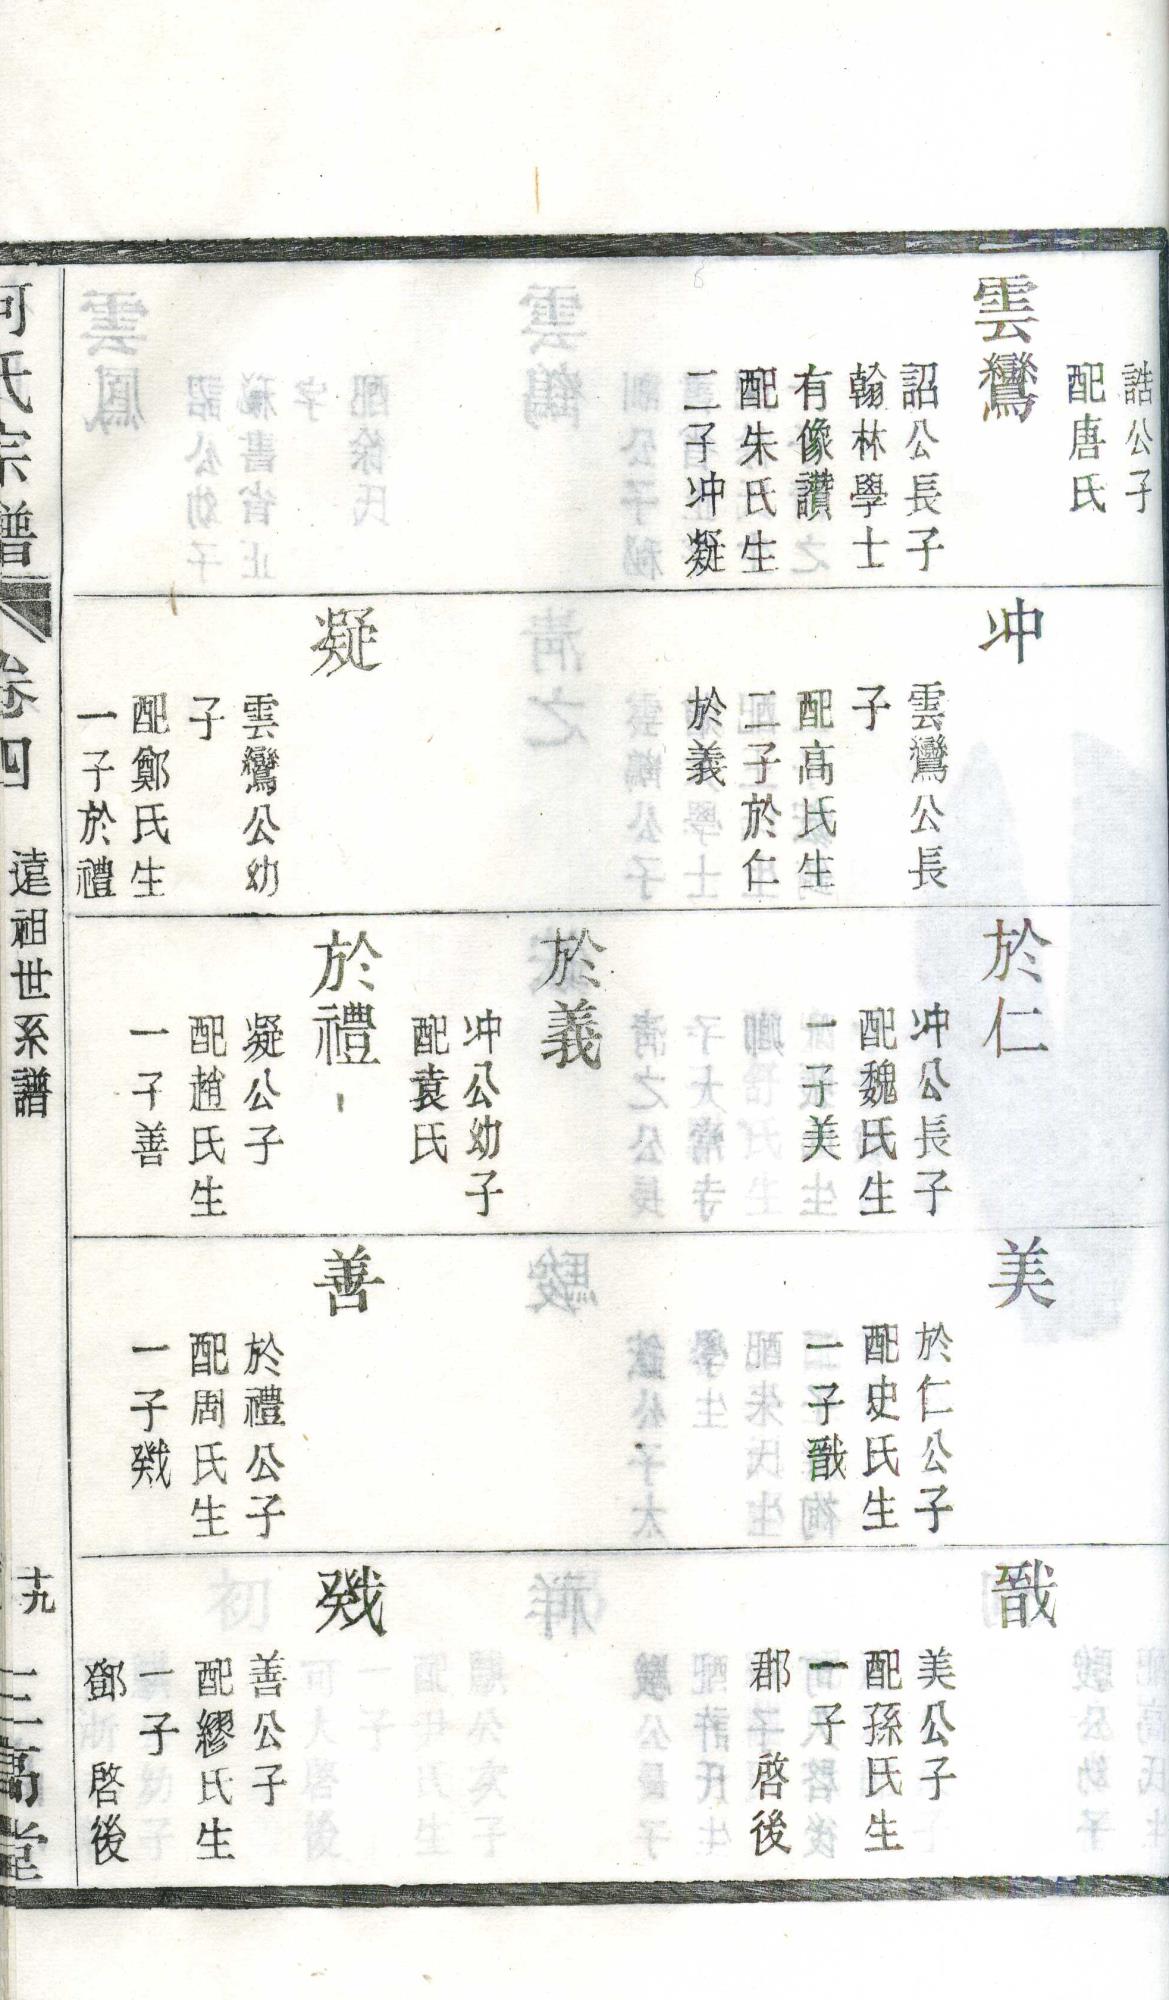 誥公子
配唐氏
雲鸞
詔公長子
翰林學士
有像讚
配朱氏生
二子冲凝
冲
雲鸞公長
子
配高氏生
二子於仁
於義
凝
雲鸞公幼
子
配鄭氏生
一子於禮
於仁
冲公長子
配魏氏生
一子美
於義
冲公幼子
配袁氏
於禮
凝公子
配趙氏生
一子善
美
於仁公子
配史氏生
一子戩
善
於禮公子
配周氏生
一子
戩
美公子
配孫氏生
一子
郡 啓後
善公子
配繆氏生
一子
鄧 啓後
何氏宗譜
卷四
遠祖世系譜
十九
三高堂